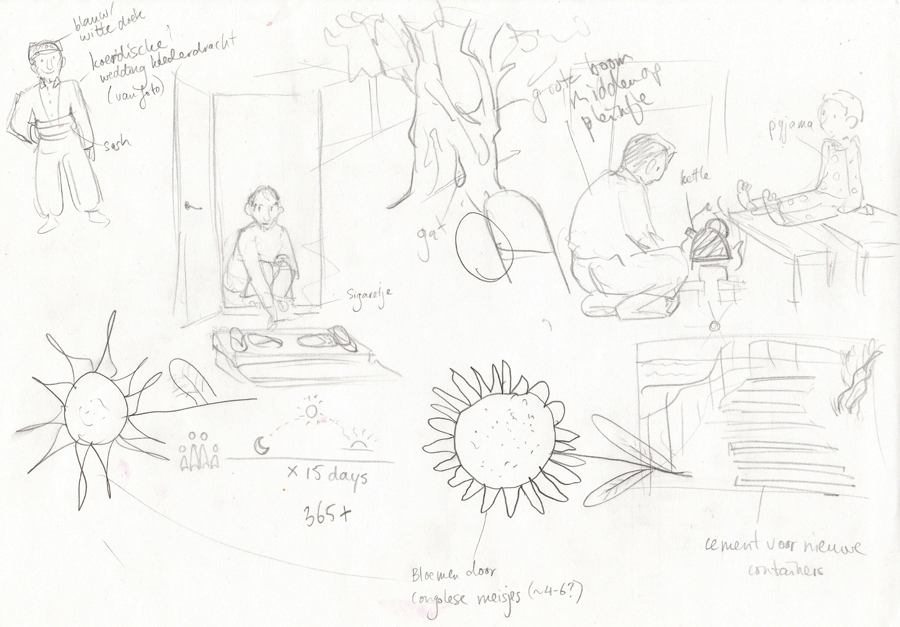 blauw/
witte doek
koerdische!
wedding klederdracht
(van foto)
sash
grote boom
midden op
plein
gat
kettle
pyjama
sigaretje
x 15 days
365+
Bloemen door
congolese meisjes (~4-6?)
cement voor nieuwe
containers